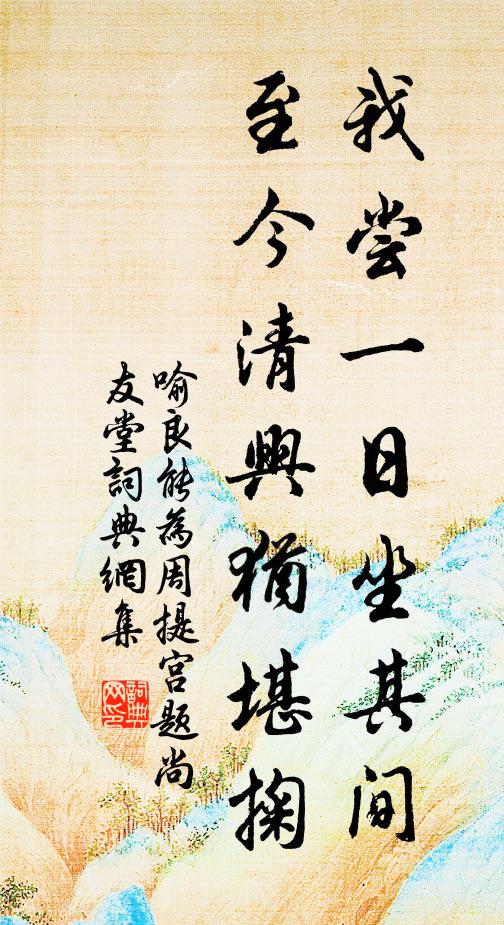 我尝一日坐其间
至今清興猶堪掬
喻良能為周提宮題尚
友堂詞典網集
詞典網印